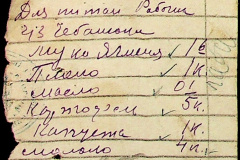 Для питан Рабочи
чз Чебански
Мука Ячмен ✓ 16
Пшено ✓ 1к.
масло ✓ 0.5
Картофел 5к.
Капуста ✓ 1к.
молоко 4к.